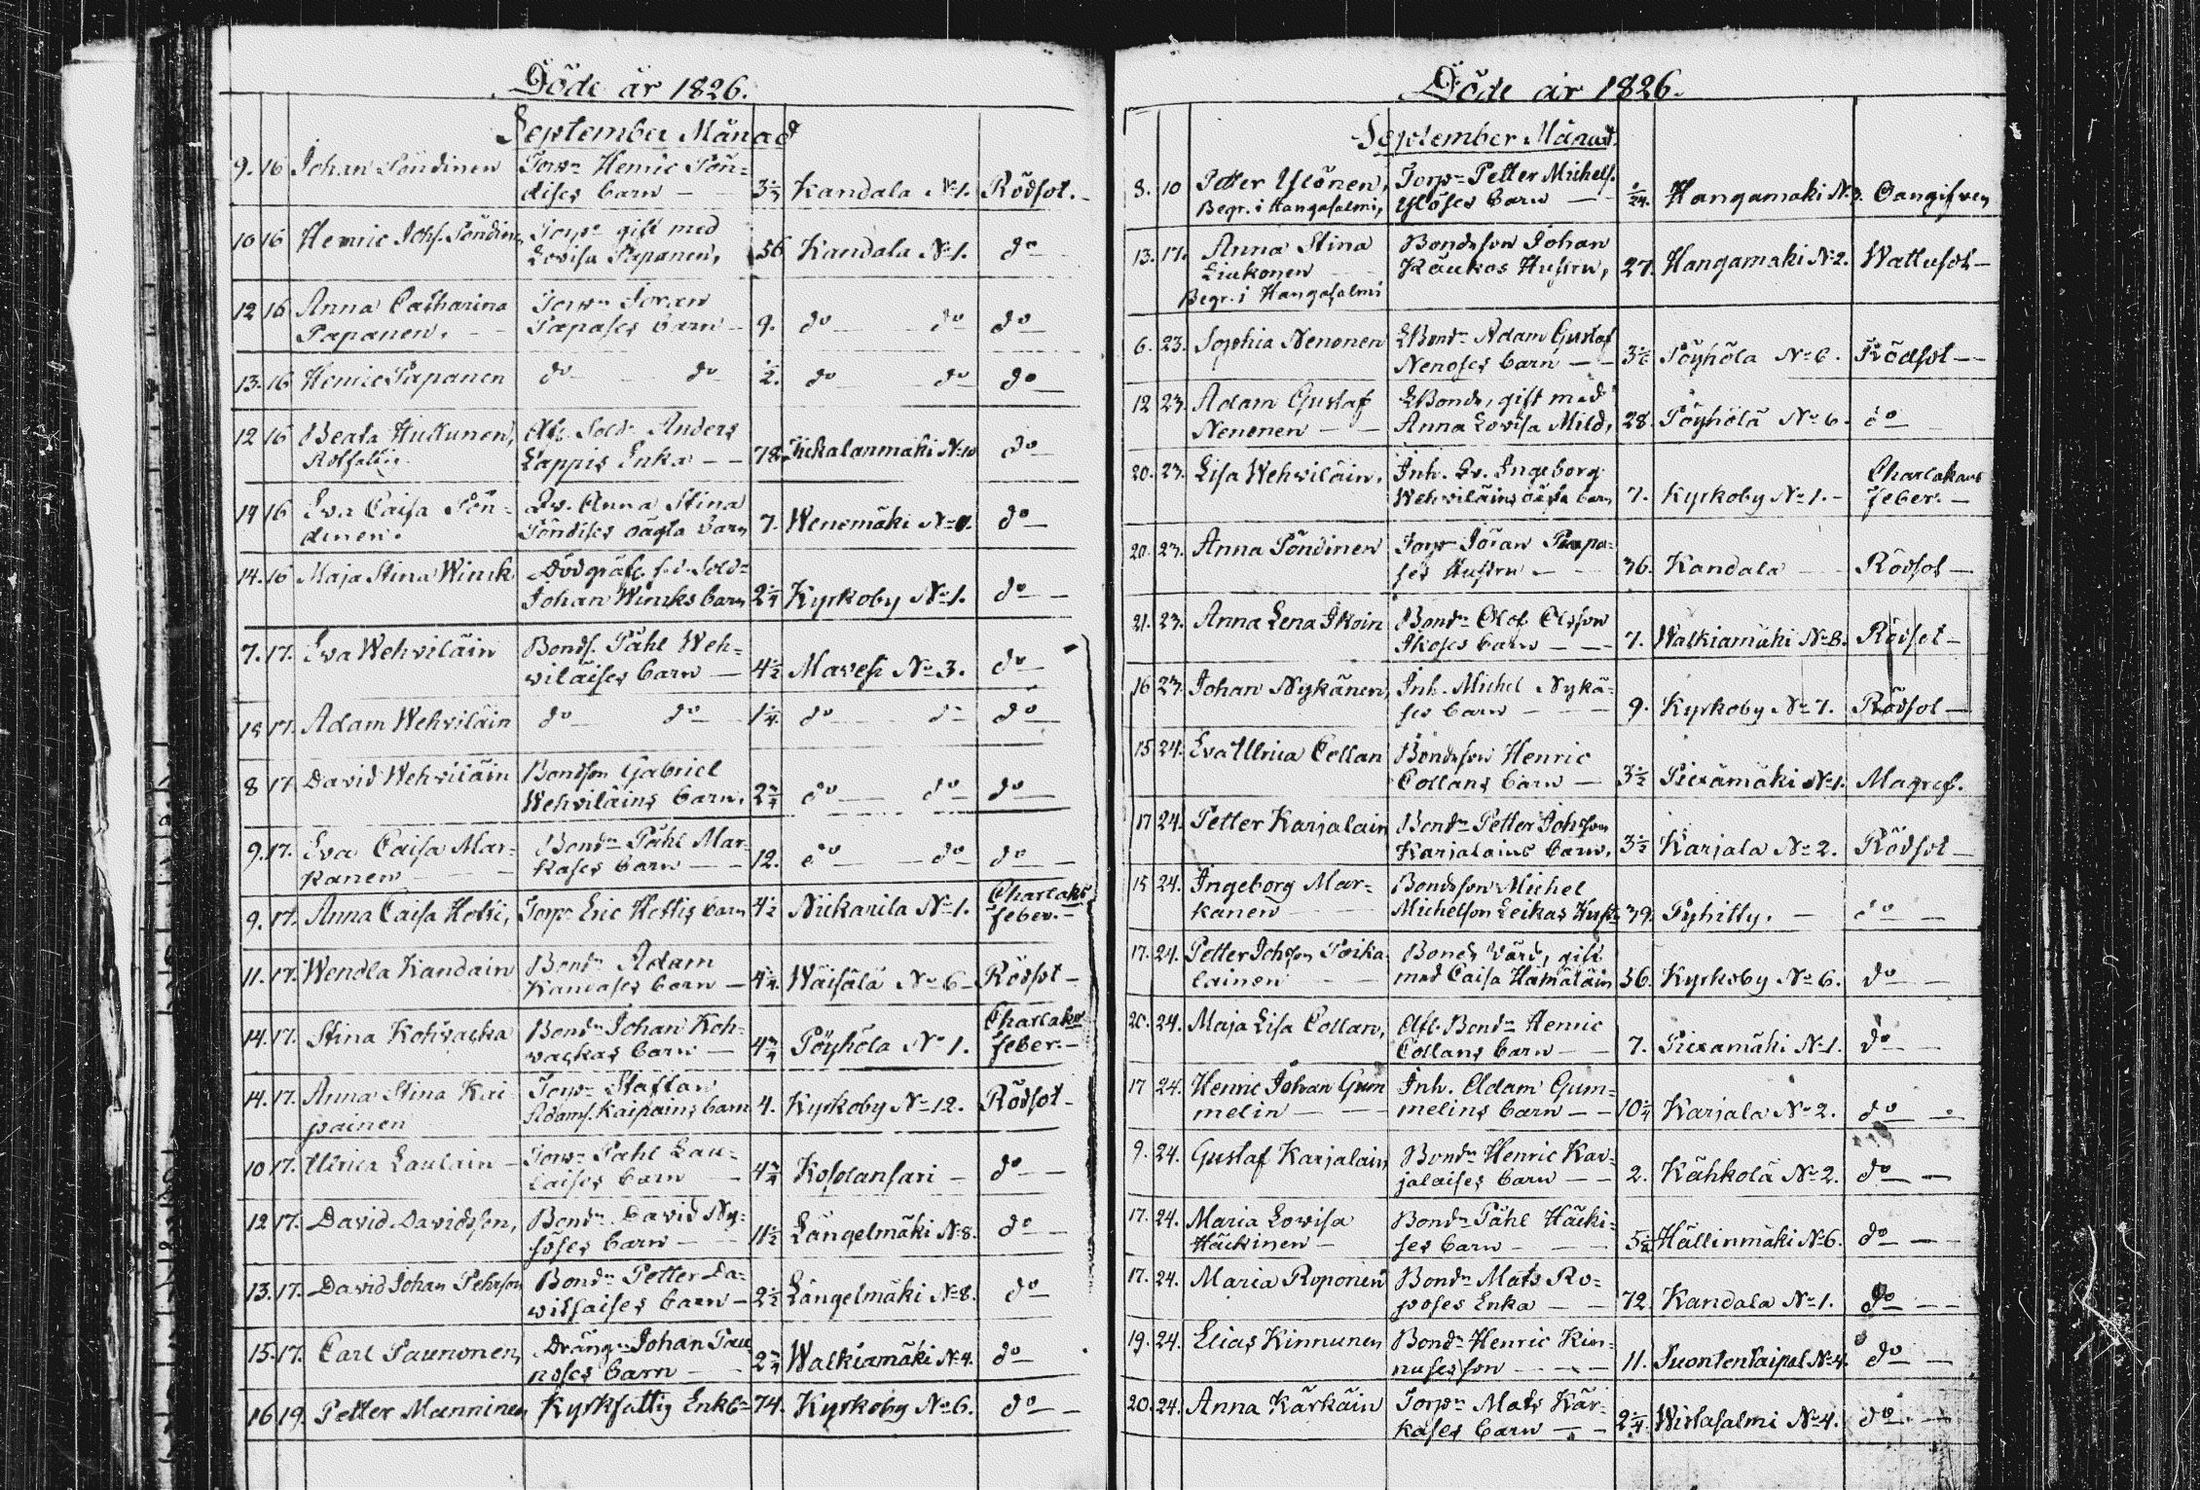 Döde år 1826.
September Månad
9. 16 Johan Pöndinen Torpn Henric Pön=
dises barn — 3½ Kandala No 1. Rödsot. -
10 16 Henric Johs. Pöndinen Torpn gift med
Lovisa Papanen, 56 Kandala No 1. do —
12 16 Anna Catharina Torpn Jöran
Papanen. - - Papases barn — 9. do — do do —
13. 16 Henric Papanen do — do ½. do — do do —
12 16 Beata Huttunen, Afl. Sold. Anders
Rotfattig. Lappis Enka — — 78. No 10 do —
14 16 Eva Caisa Pön= Qv. Anna Stina
dinen. Pöndises oägta barn 7. Wenemäki do —
14. 16 Maja Stina Winck Dödgräfv. f.d. Sold=
Johan Wincks barn 2¼ Kyrkoby No 1. do — —
7. 17. Eva Wehviläin Bonds. Påhl Weh=
viläises barn — 4½ Mavesi No 3. do —
17. Adam Wehviläin do — do — 1¼. do — do do —
8 17 David Wehviläin Bondson Gabriel
Wehviläins barn. 2¾ do — do — do —
9. 17. Eva Caisa Mar= Bondn Påhl Mar=
kanen — — kases barn — — 12. do — — do do — —
Charlaks
9. 17. Anna Caisa Hotti, Torpn Eric Hottis barn 4½ Niskarila No 1. feber. -
11. 17. Wendla Kandain Bondn Adam
Kandases barn — 4¼ Wäisälä No 6 - Rödsot -
Charlaks
14. 17. Stina Kohvacka Bondn Johan Koh=
vackas barn — 4¾ Pöyhölä No 1. feber. -
14. 17. Anna Stina Kai Torpn Staffan
painen Adams. Kaipains barn 4. Kyrkoby No 12. Rödsot -
10 17. Ulrica Laulain — Torpn Påhl Lau=
laises barn — 4¾ Koslansari — do — —
12 17. David Davidsson, Bondn David Ny=
söses barn — — 11½ Längelmäki No 8. do — —
13. 17. David Johan Pehrson Bondn Petter Da=
vitsaises barn — 2½ Längelmäki No 8. do —
15. 17. Carl Paunonen, Dräng Johan Pau
noses barn — — 2¾ Walkiamäki No 4. do —
16 19. Petter Manninen Kyrkfattig Enkl= 74. Kyrkoby No 6. do — -
Döde år 1826.
September Månad.
8. 10 Petter Ylönen, Torpn Petter Michels.
Begr. i Hangasalmi, Ylöses barn — — Hangamaki No 3. Oangifven
13. 17. Anna Stina Bondeson Johan
Liukonen — — Käukos Hustru, 27. Hangamaki No 2. Wattusot —
Begr. i Hangasalmi
6. 23. Sophia Nenonen LBondn Adam Gustaf
Nenoses barn — — Pöyhölä No 6. Rödsot —
12 23. Adam Gustaf LBonde, gift med
Nenonen — — Anna Lovisa Mild, 28. Pöyhölä No 6. do —
20. 23. Lisa Wehviläin. Inh. Qv. Ingeborg Charlakans
Wehviläins oägta barn 7. Kyrkoby No 1. - feber. -
20. 23. Anna Pöndinen Torpn Jöran Papa=
ses Hustru — — 36. Kandala — — Rödsot —
21. 23. Anna Lena Ikoin Bondn Olof Olsson
Ikoses barn — — 7. Walkiamäki No 8. Rödsot —
16 23. Johan Nykänen, Inh. Michel Nykä=
ses barn — — — 9. Kyrkoby No 7. Rödsot —
15 24. Eva Ulrica Collan Bondeson Henric
Collans barn — 3½ Piexämäki No 1. Magref.
17 24. Petter Karjalain Bondn Petter Johsson
Karjalains barn. 3½ Karjala No 2. Rödsot —
15 24. Ingeborg Mar= Bondeson Michel
kanen — — Michelson Leikas Hustr. 39. Pyhitty. — do —
17. 24. Petter Johsson Poika Bonds Värd, gift
lainen — — med Caisa Hämäläin 56. Kyrkoby No 6. do — —
20. 24. Maja Lisa Collan, Afl. Bondn Henric
Collans barn — — 7. Piexamäki No 1. do —
17 24. Henric Johan Gum Inh. Adam Gum=
melin — melins barn — — 10¼ Karjala No 2. do — -
9. 24. Gustaf Karjalain Bondn Henric Kar=
jalaises barn — — 2. Kähkölä No 2. do — —
17. 24. Maria Lovisa Bondn Påhl Häcki=
Häckinen — ses barn — — — 5½ Hällinmäki No 6. do — —
17. 24. Maria Roponen Bondn Mats Ro=
poses Enka — — 72. Kandala No 1. do — —
19. 24. Elias Kinnunen Bondn Henric Kin=
nuses son — — — 11. Tuontentaipal No 4. do — —
20. 24. Anna Kärkäin Torpn Mats Kär=
käses barn — — 2¼ Wirtasalmi No 4. do — —